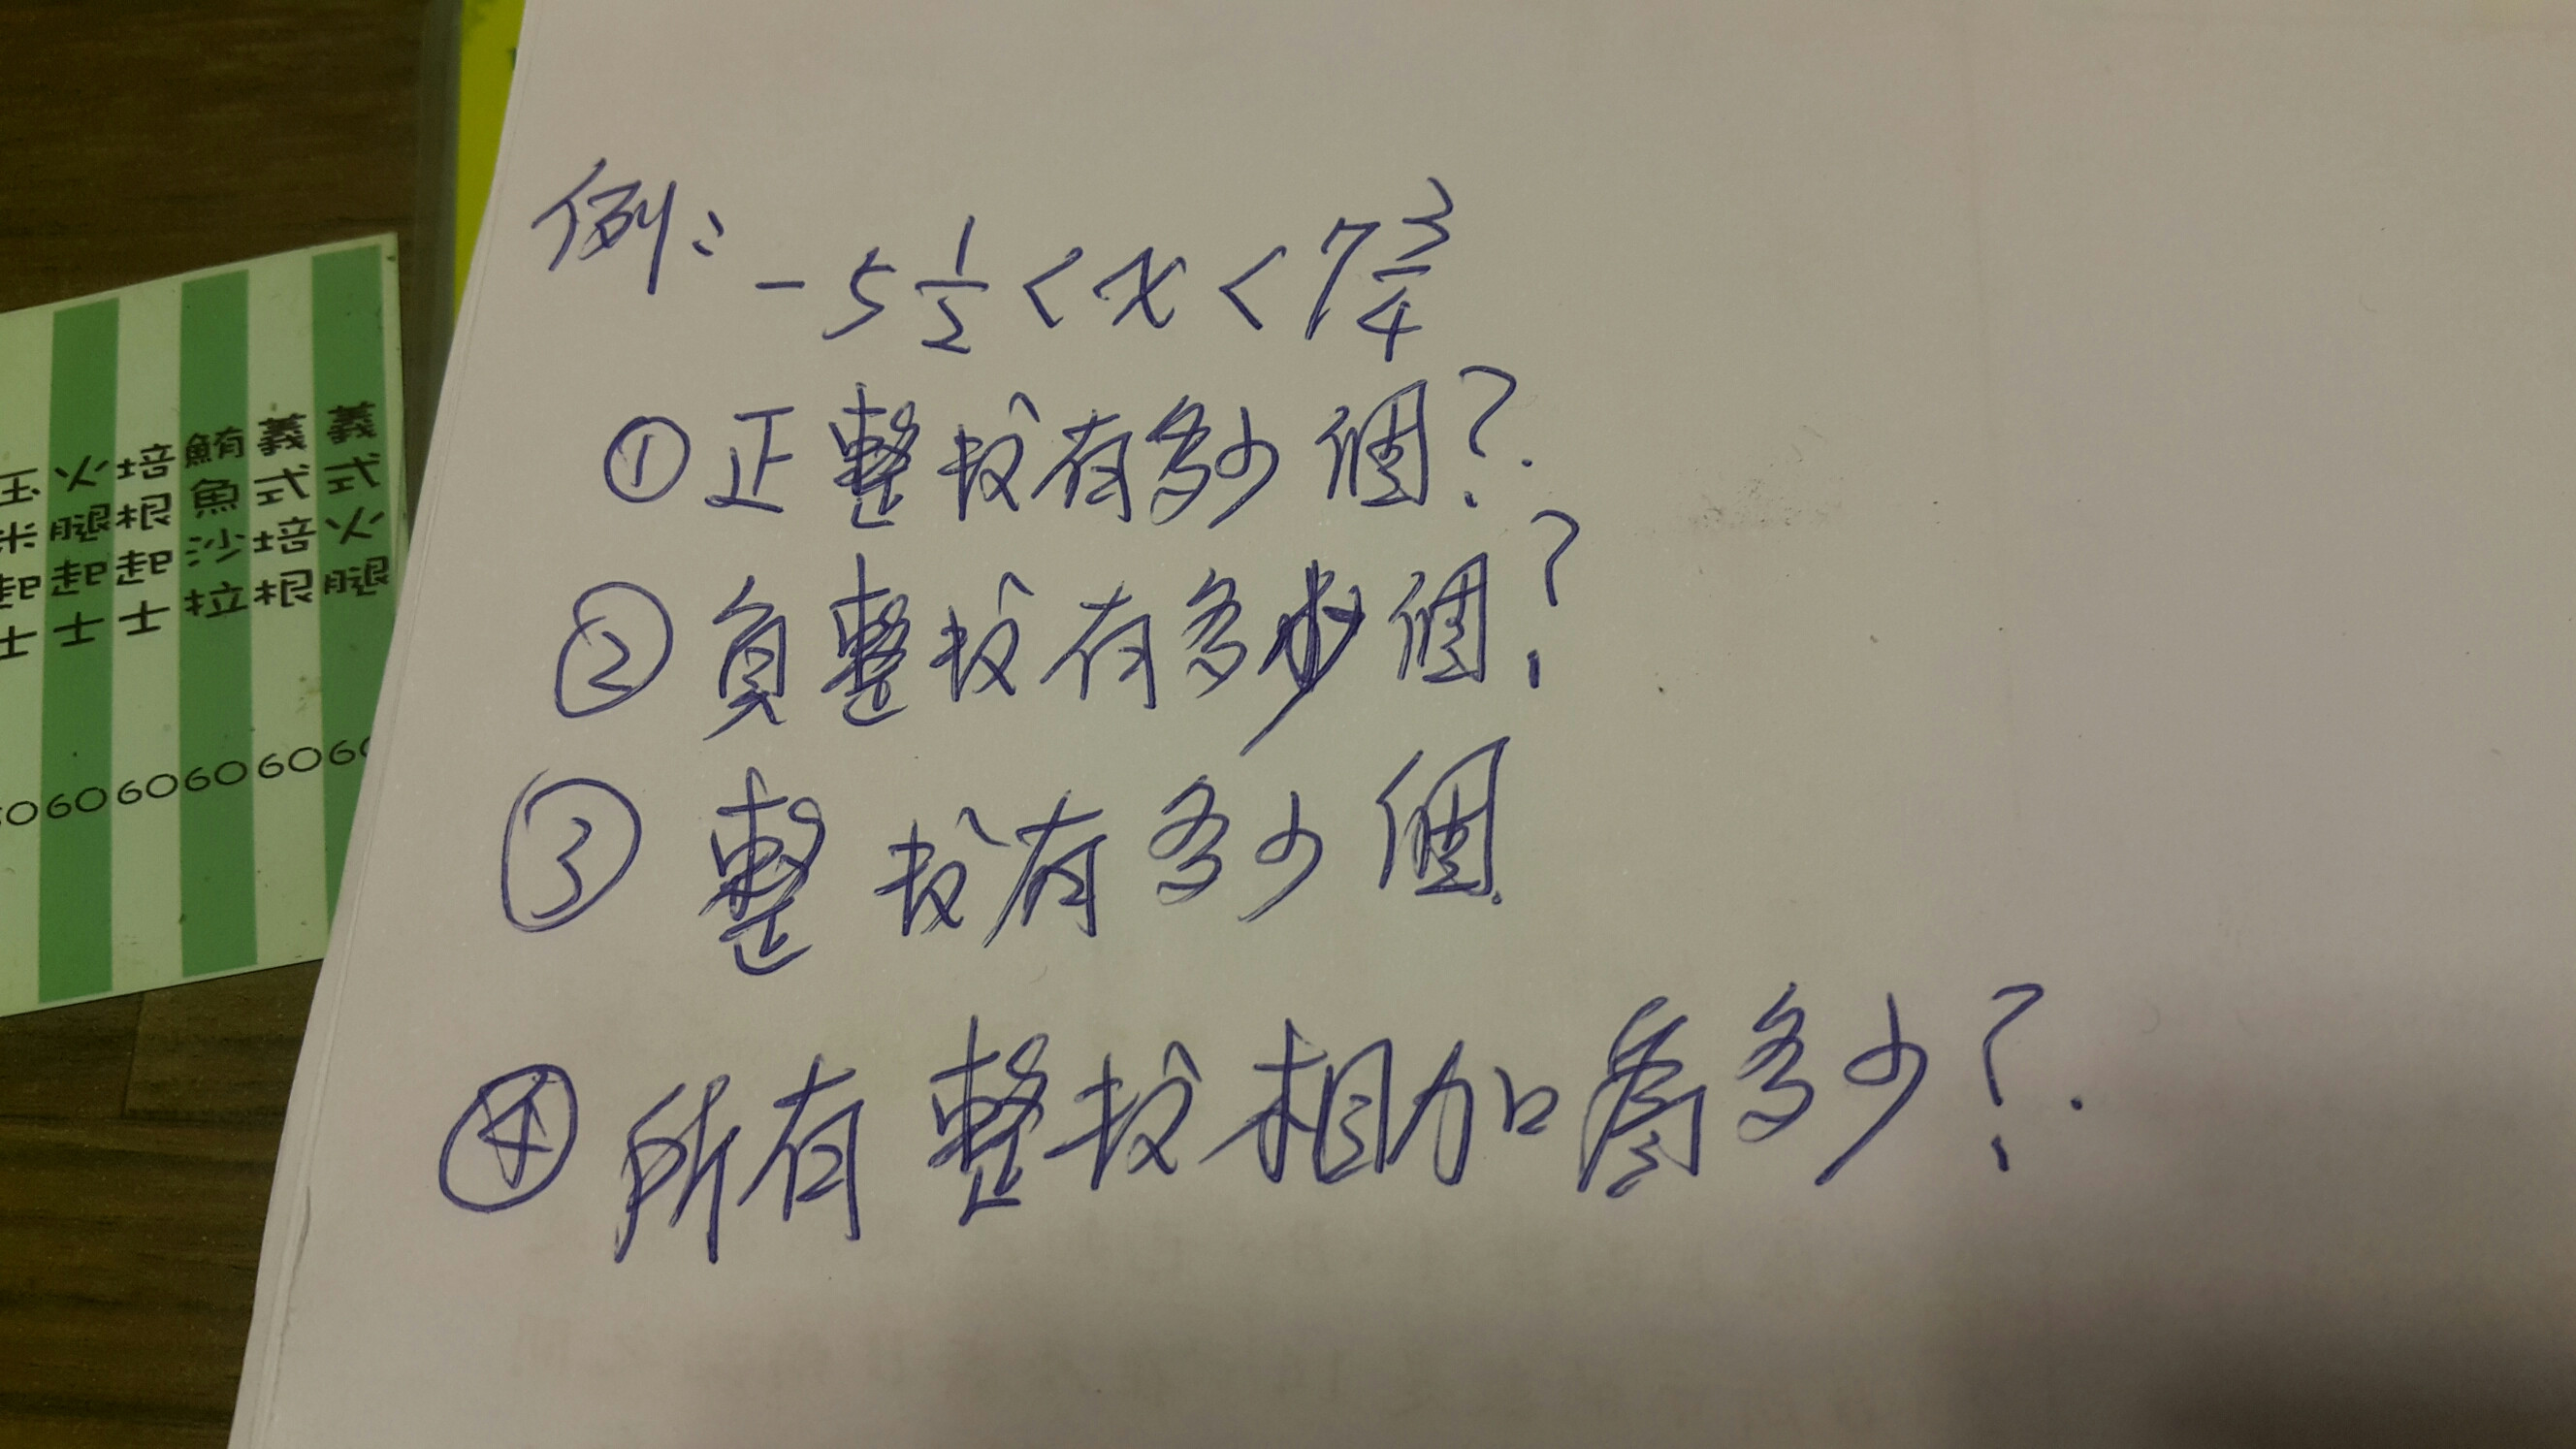 例: -5 1/2 < x < 7 3/4
① 正整數有多少個?
② 負整數有多少個?
③ 整數有多少個
④ 所有整數相加為多少?
義式火腿 60
義式培根 60
鮪魚沙拉 60
培根起士 60
火腿起士 60
玉米起士